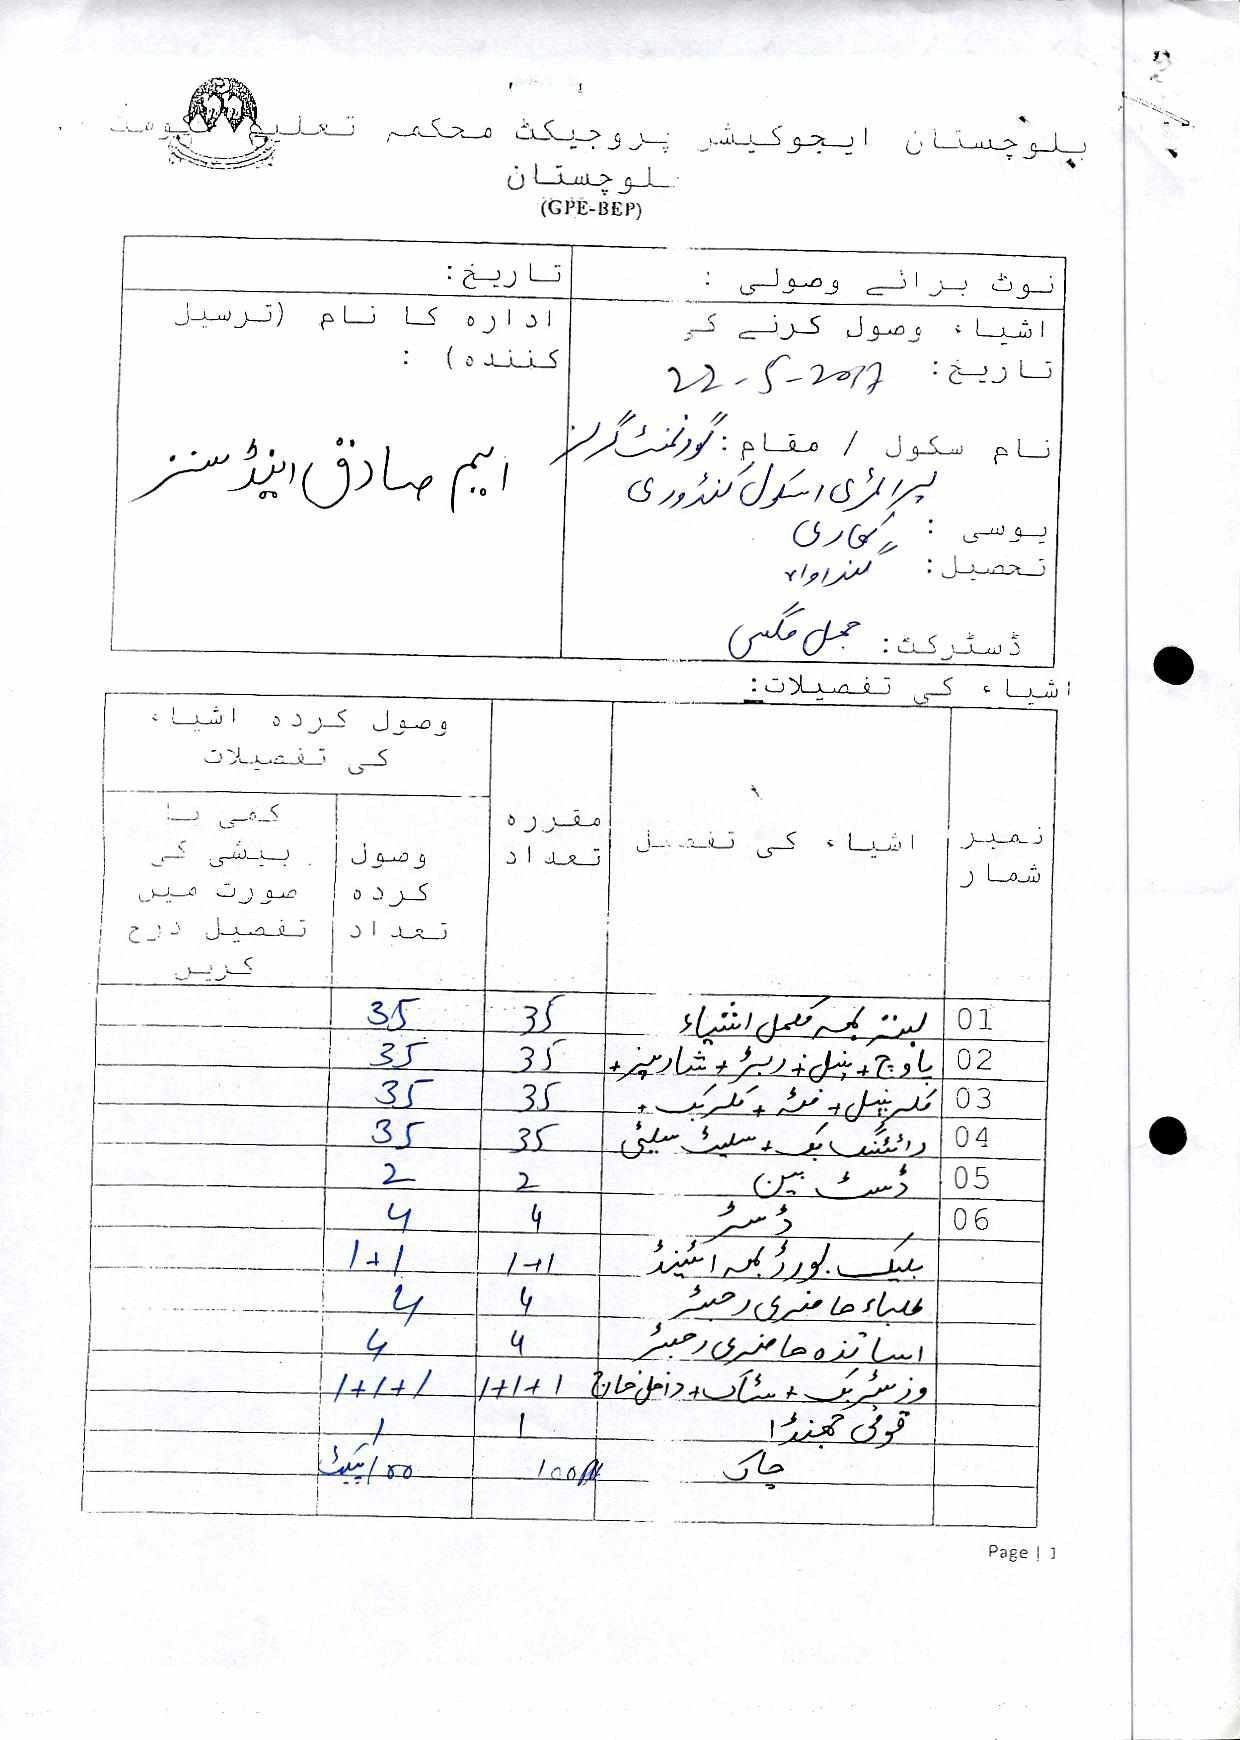 بلوچستان ایجوکیشن پروجیکٹ محکمہ تعلیم حکومت
بلوچستان
(GPE-BEP)
نوٹ برائے وصولی :
تاریخ:
اشیاء وصول کرنے کی
تاریخ: 22-5-2017
نام سکول / مقام: گورنمنٹ گرلز
پرائمری اسکول کنڈوری
یوسی : کھاری
تحصیل: گنداواہ
ڈسٹرکٹ: جھل مگسی
ادارہ کا نام (ترسیل
کنندہ) :
ایم صادق اینڈ سنز
اشیاء کی تفصیلات:
نمبر شمار
اشیاء کی تفصیل
مقررہ تعداد
وصول کردہ اشیاء کی تفصیلات
وصول کردہ تعداد
کمی یا بیشی کی صورت میں تفصیل درج کریں
01 بستہ بمعہ مکمل اشیاء 35 35
02 پاوچ + پنسل + ربڑ + شارپنر + 35 35
03 کلر پنسل + فٹہ + کلر بک + 35 35
04 رائٹنگ بک + سلیٹ سلیٹی 35 35
05 ڈسٹ بین 2 2
06 ڈسٹر 4 4
بلیک بورڈ بمعہ اسٹینڈ 1+1 1+1
طلباء حاضری رجسٹر 4 4
اساتذہ حاضری رجسٹر 4 4
وزیٹر بک + سٹاک + داخل خارج 1+1+1 1+1+1
قومی جھنڈا 1 1
چاک 100 100 پیکٹ
Page | 1